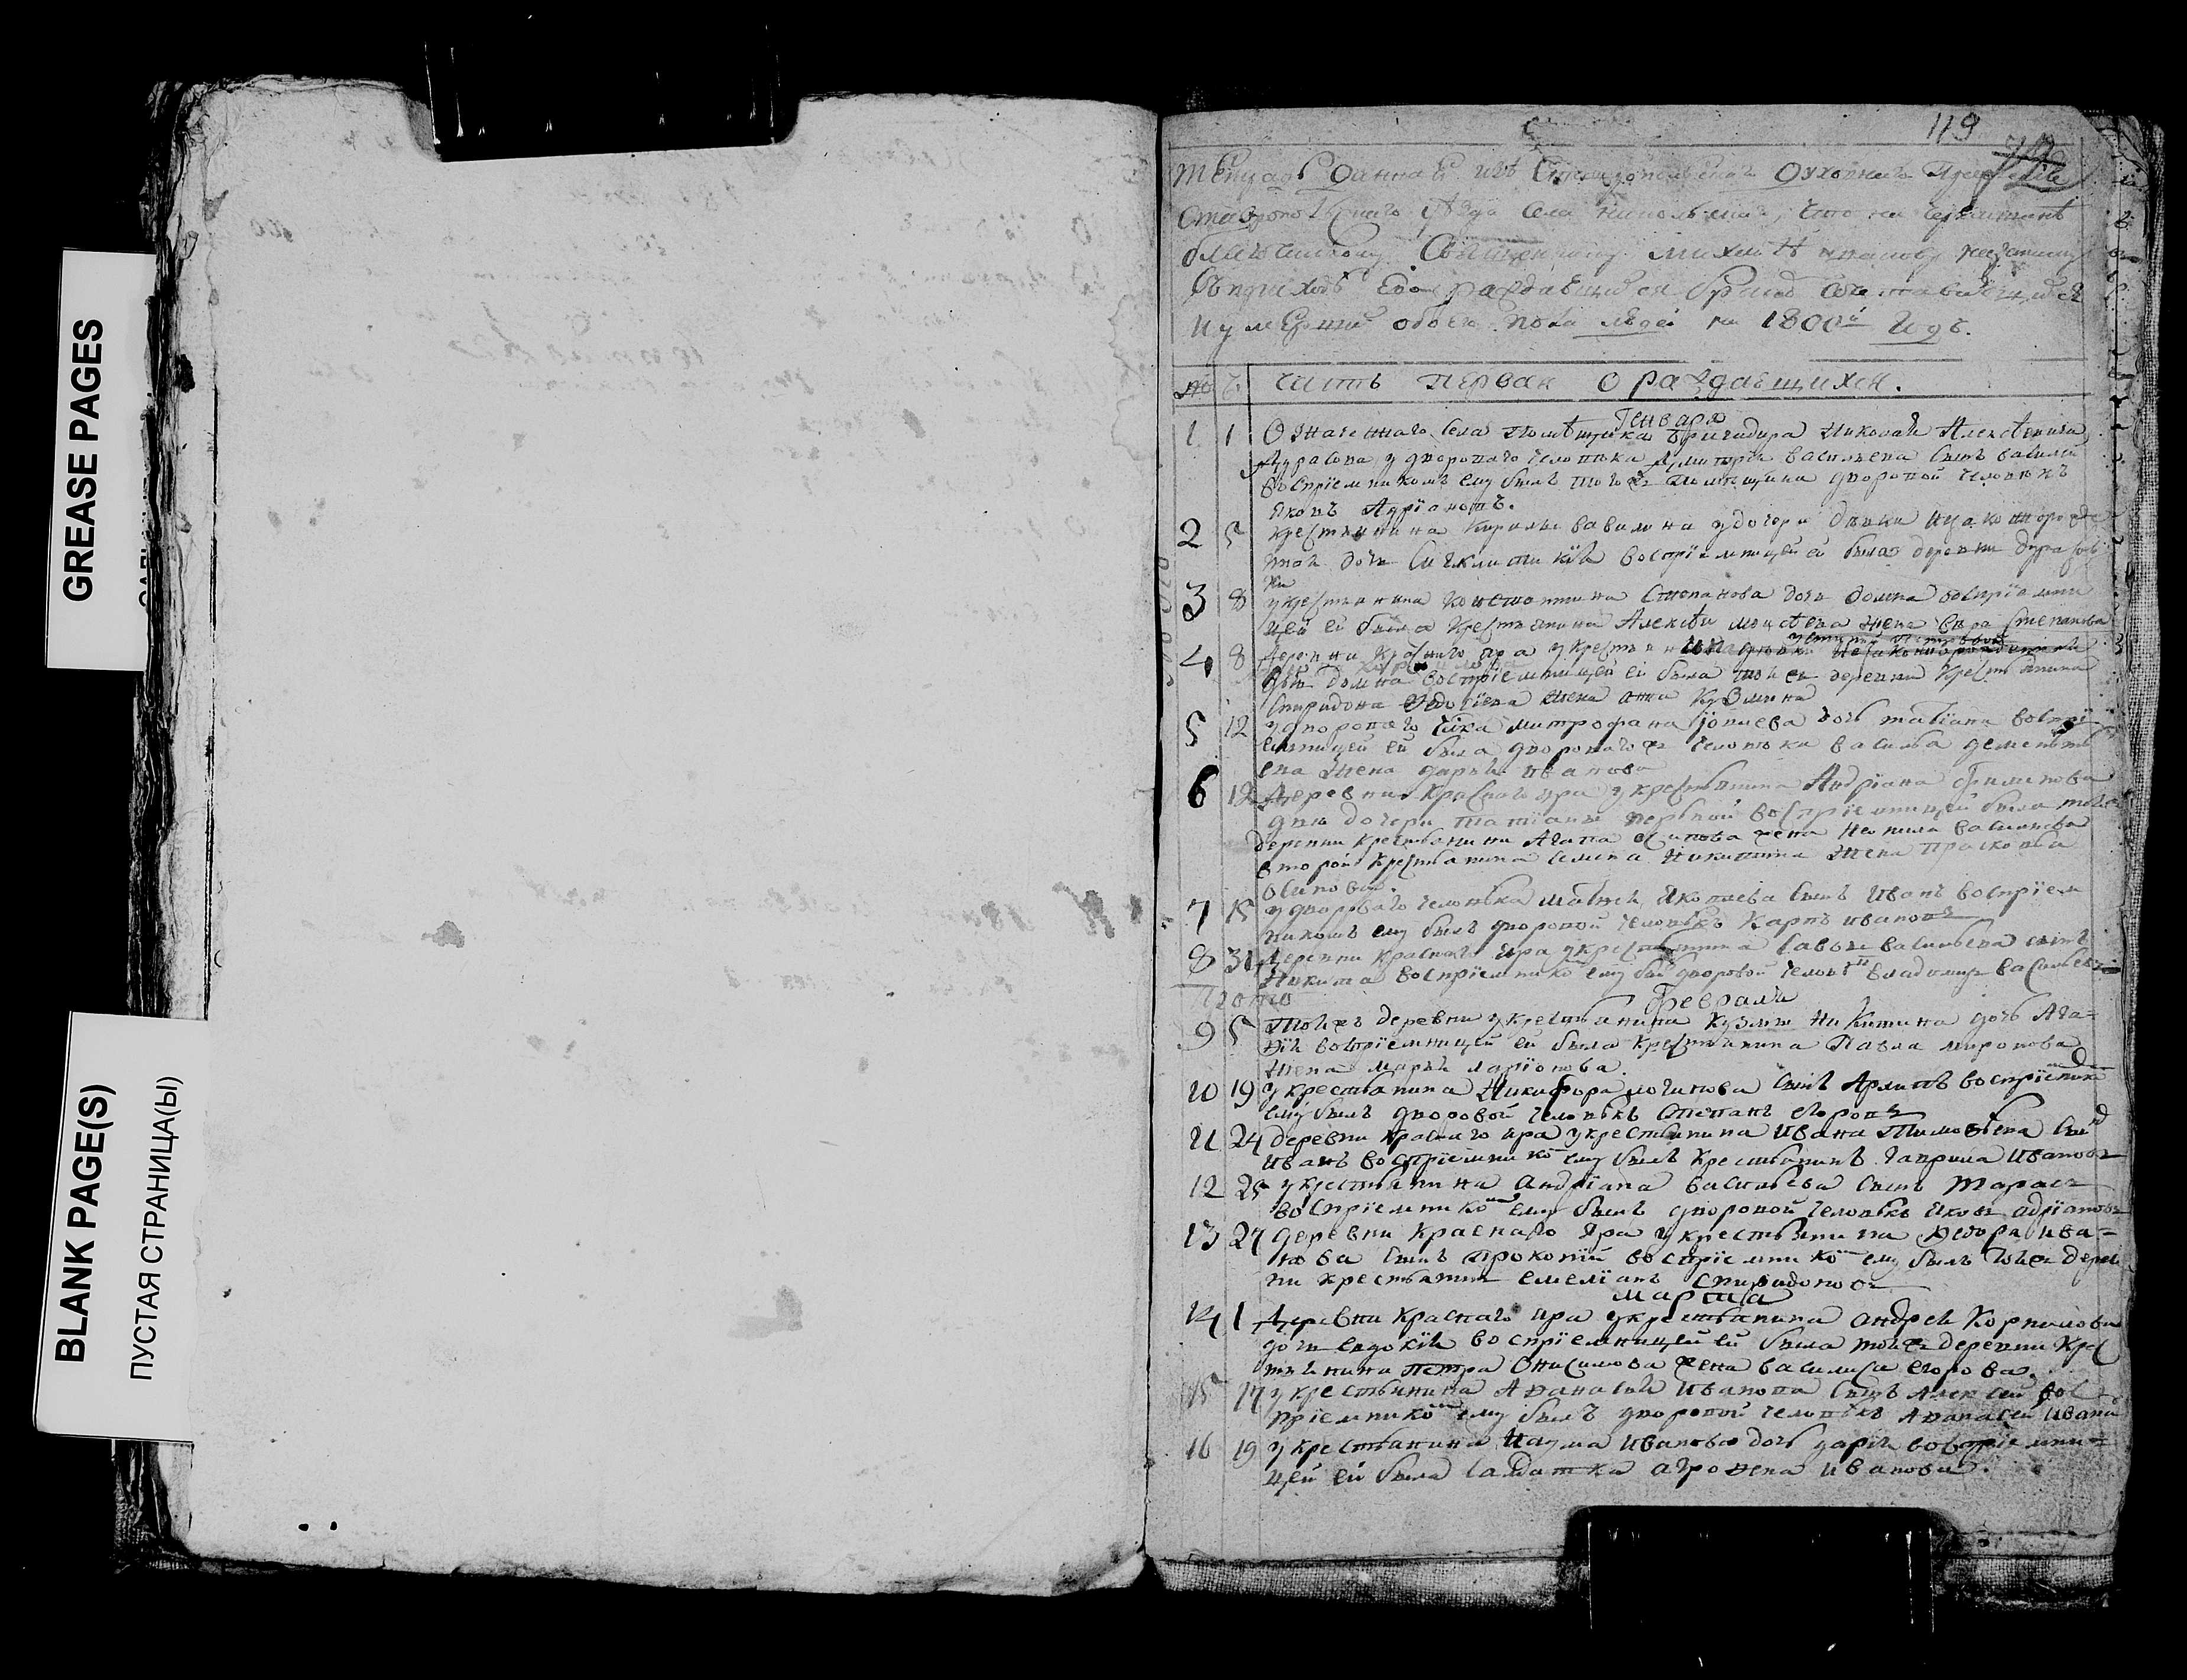 GREASE PAGES
BLANK PAGE(S)
ПУСТАЯ СТРАНИЦА(Ы)
119
Тетрадь данная изъ Ставропольскаго Духовнаго
Ставропольскаго уѣзда села Никольскаго, что на Черемшанѣ
Священнику
въ приходѣ ево раждавшихся бракомъ сочетавшихся
и умерших обоего пола людей на 1800й годъ.
№ Ч. Часть первая О раждавшихся.
Генваря
1 1 Означеннаго села помѣщика бригадира Николая Алексѣевича
Дурасова у двороваго человѣка Дмитрія Васильева сынъ Василий
воспріемникомъ ему былъ того ж помѣщика дворовой человѣкъ
Яковъ Адріановъ.
2 5 крестьянина Кирилы Вавилина у дочери дѣвки незаконнорожде
ная дочь Сигклитикия воспріемницей ей была деревни Дурасов
ки
3 8 у крестьянина Константина Степанова дочь Домна воспріемни
цей ей была крестьянина Алексѣя Моисѣева жена Вера Степанова
4 8 деревни Краснаго Яра у крестьян
дочь Домна воспріемницей ей была той ж деревни крестьянина
Спиридона жена Анна Кузмина
5 12 у двороваго члка Митрофана Іовлева дочь Татіана воспрі
емницей ей была двороваго ж человѣка Василья Дементь
ева жена Дарья Иванова
6 12 Деревни Краснаго Яра у крестьянина Андріана Филипова
двѣ дочери Татіаны первой воспріемницей была той ж
деревни крестьянина Агапа Осипова жена Ненила Васильева
второй крестьянина Семена Никитина жена Прасковья
Осипова.
7 15 у двороваго человѣка Матвея Яковлева сынъ Иванъ воспріем
никомъ ему былъ дворовой человѣкъ Карпъ Ивановъ
8 31 Деревни Краснаго Яра у крестьянина Савы Васильева сынъ
Никита воспріемнико ему был дворовой человѣ Владимир Васильевъ
Февраля
9 5 Той жъ деревни у крестьянина Кузмы Никитина дочь Ага=
ѳія воспріемницей ей была крестьянина Павла Миронова
жена Марья Ларіонова
10 19 у крестьянина Никифора Логинова сынъ Архипъ воспріемник
ему былъ дворовой человѣкъ Степанъ Егоровъ
11 24 деревни Краснаго Яра у крестьянина Ивана Тимоѳеева сын
Иванъ воспріемнико ему былъ крестьянинъ Гаврила Ивановъ
12 25 у крестьянина Андріана Васильева сынъ Тарасъ
воспріемнико ему былъ дворовой человѣкъ Яковъ Адріановъ
13 27 Деревни Краснаго Яра у крестьянина Ѳедора Ива=
нова сынъ Прокопій воспріемнико ему былъ той ж дерев
ни крестьянин Емеліанъ Спиридоновъ
Марта
14 1 Деревни Краснаго Яра у крестьянина Андрея Корнилова
дочь Евдокія воспріемницей ей была той ж деревни крес
тьянина Петра Онисимова жена Василиса Егорова.
15 17 у крестьянина Аѳанасья Иванова сынъ Алексей вос
пріемнико ему былъ дворовой человѣкъ Аѳанасей Иванов
16 19 у крестьянина Наума Иванова дочь Дарья воспріемни=
цей ей была салдатка Агрофена Иванова.